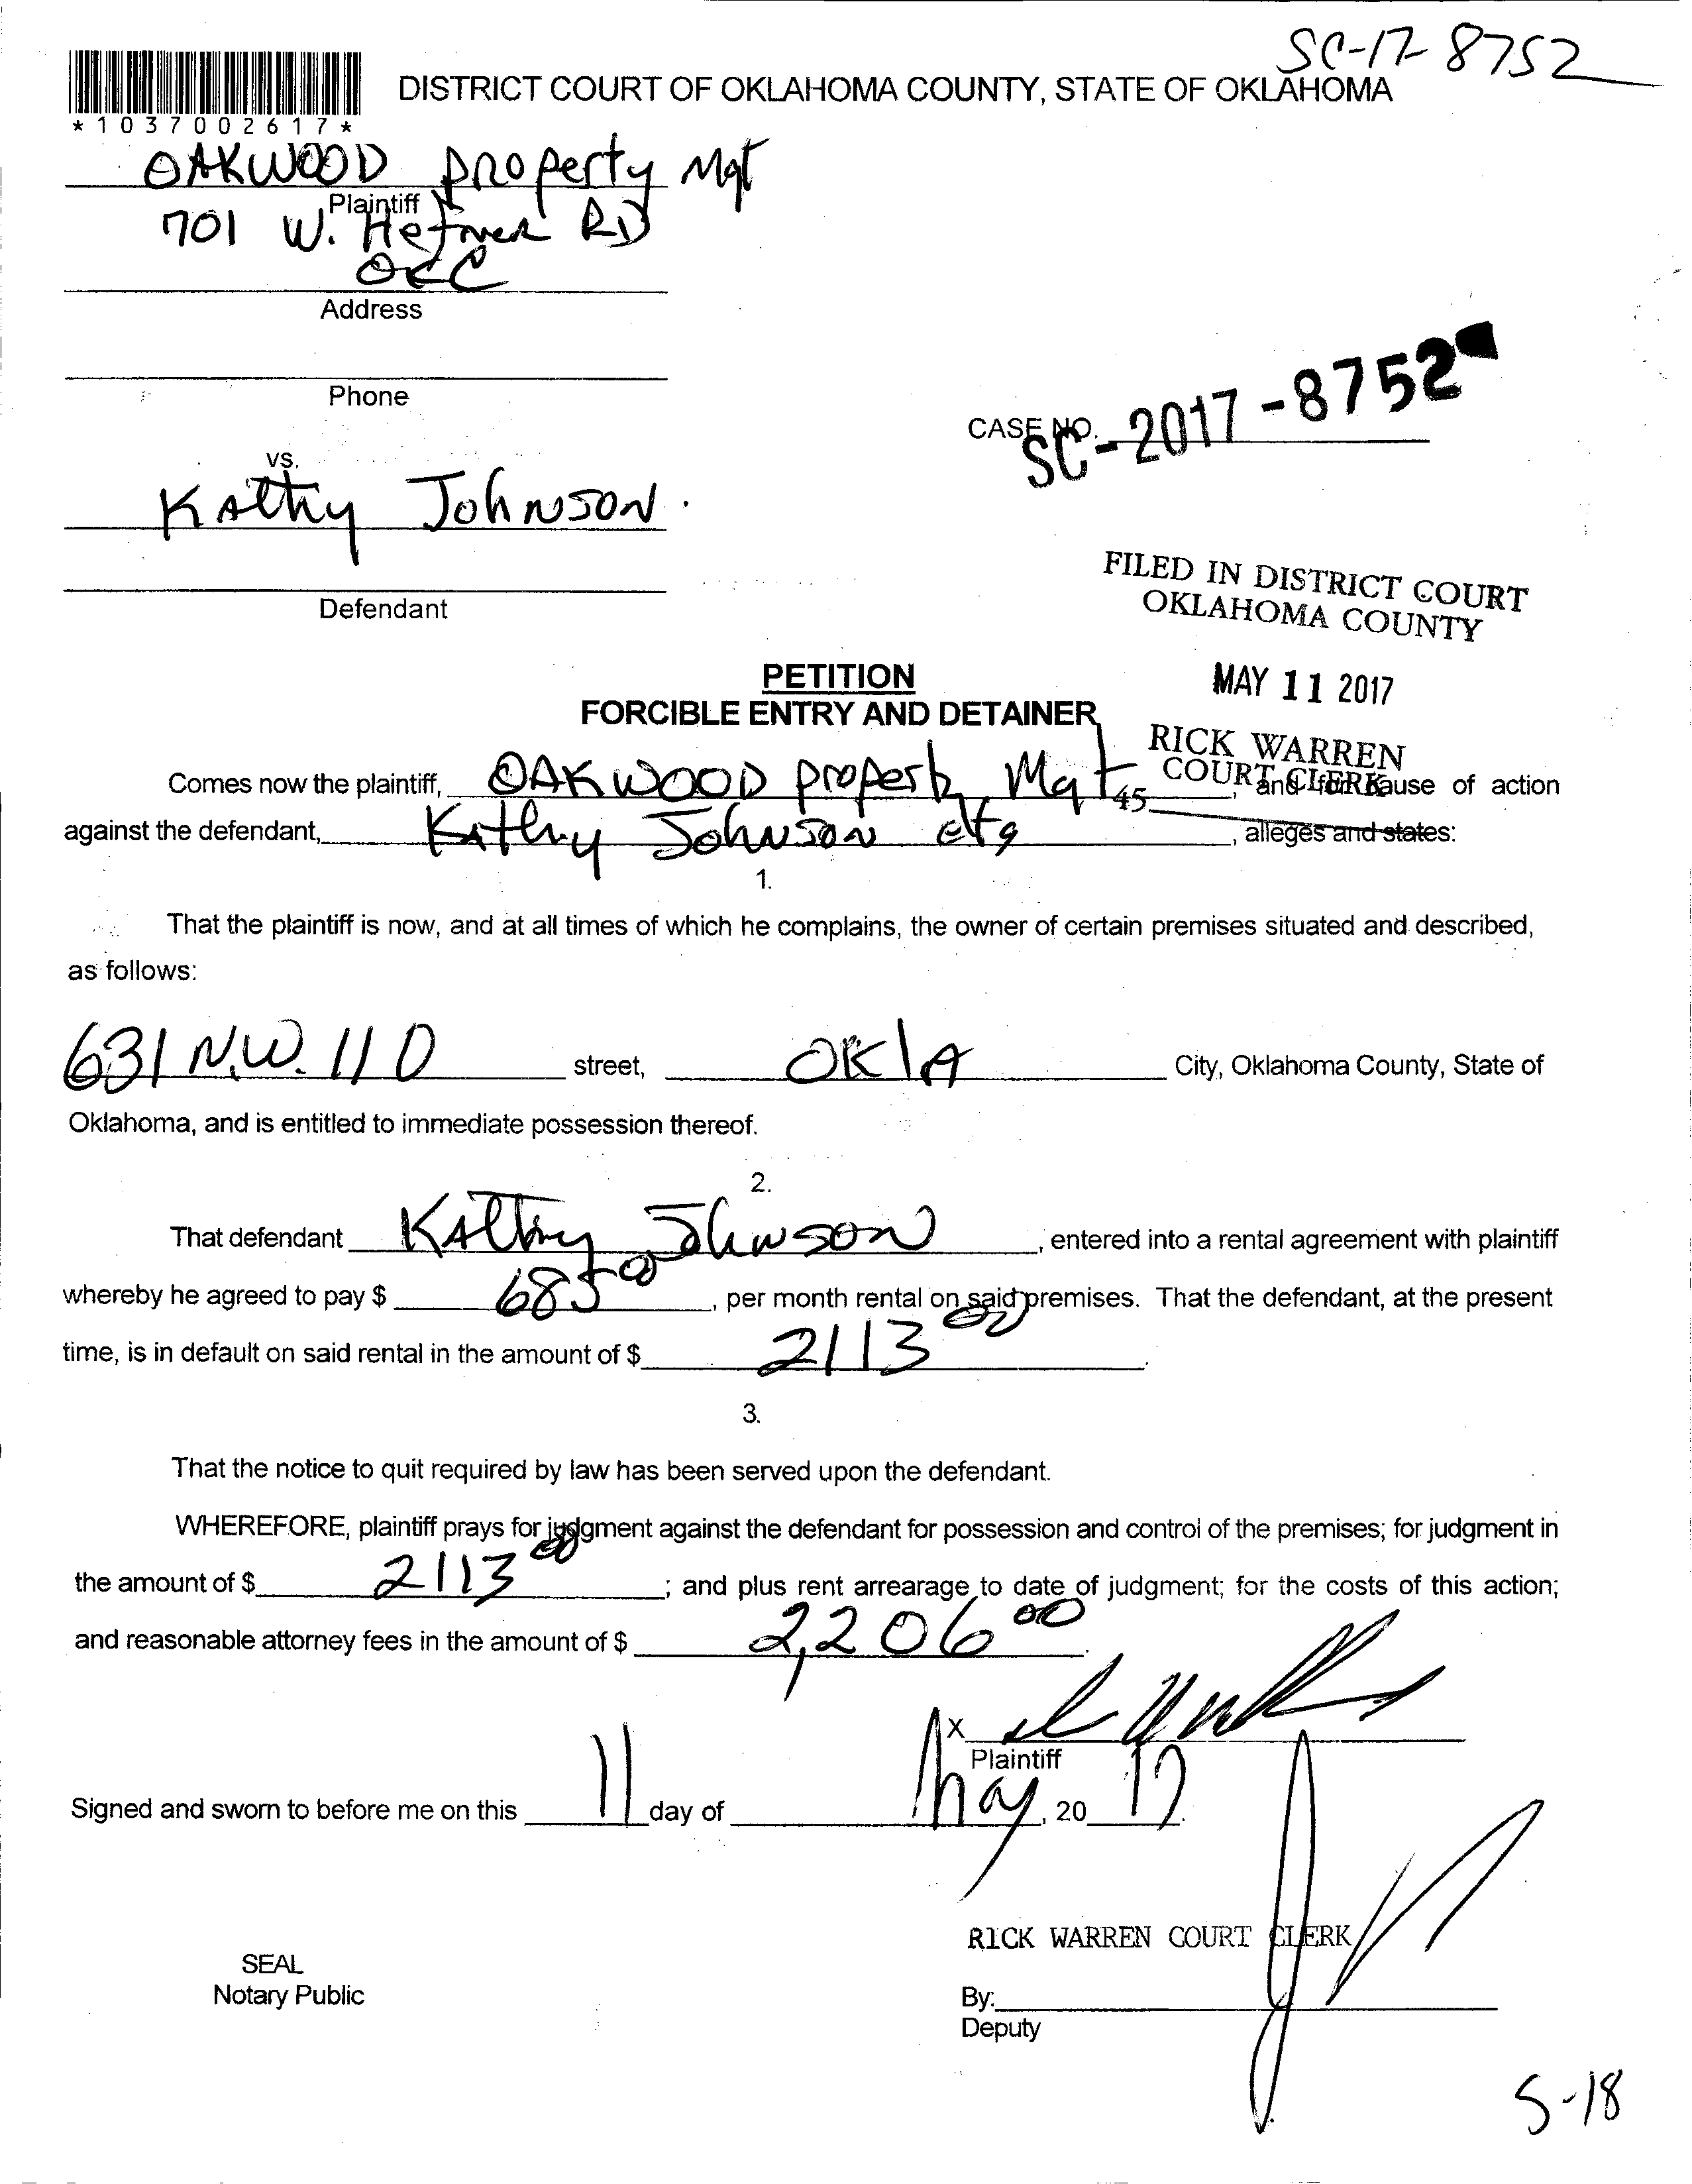 SC-17-8752
DISTRICT COURT OF OKLAHOMA COUNTY, STATE OF OKLAHOMA
*1037002617*
OAKWOOD property Mgt
Plaintiff
701 W. Hefner RD
OKC
Address
Phone
CASE NO.
SC-2017-8752
vs.
Kathy Johnson
Defendant
FILED IN DISTRICT COURT
OKLAHOMA COUNTY
MAY 11 2017
RICK WARREN
COURT CLERK
45
PETITION
FORCIBLE ENTRY AND DETAINER
Comes now the plaintiff, OAKWOOD property Mgt, and for cause of action
against the defendant, Kathy Johnson, alleges and states:
1.
That the plaintiff is now, and at all times of which he complains, the owner of certain premises situated and described,
as follows:
631 N.W. 110 street, OKlA City, Oklahoma County, State of
Oklahoma, and is entitled to immediate possession thereof.
2.
That defendant Kathy Johnson, entered into a rental agreement with plaintiff
whereby he agreed to pay $ 685 00, per month rental on said premises. That the defendant, at the present
time, is in default on said rental in the amount of $ 2113 00.
3.
That the notice to quit required by law has been served upon the defendant.
WHEREFORE, plaintiff prays for judgment against the defendant for possession and control of the premises; for judgment in
the amount of $ 2113 00; and plus rent arrearage to date of judgment; for the costs of this action;
and reasonable attorney fees in the amount of $ 2,206 00.
X
Plaintiff
Signed and sworn to before me on this 11 day of May, 2017.
RICK WARREN COURT CLERK
SEAL
Notary Public
By:
Deputy
5-18